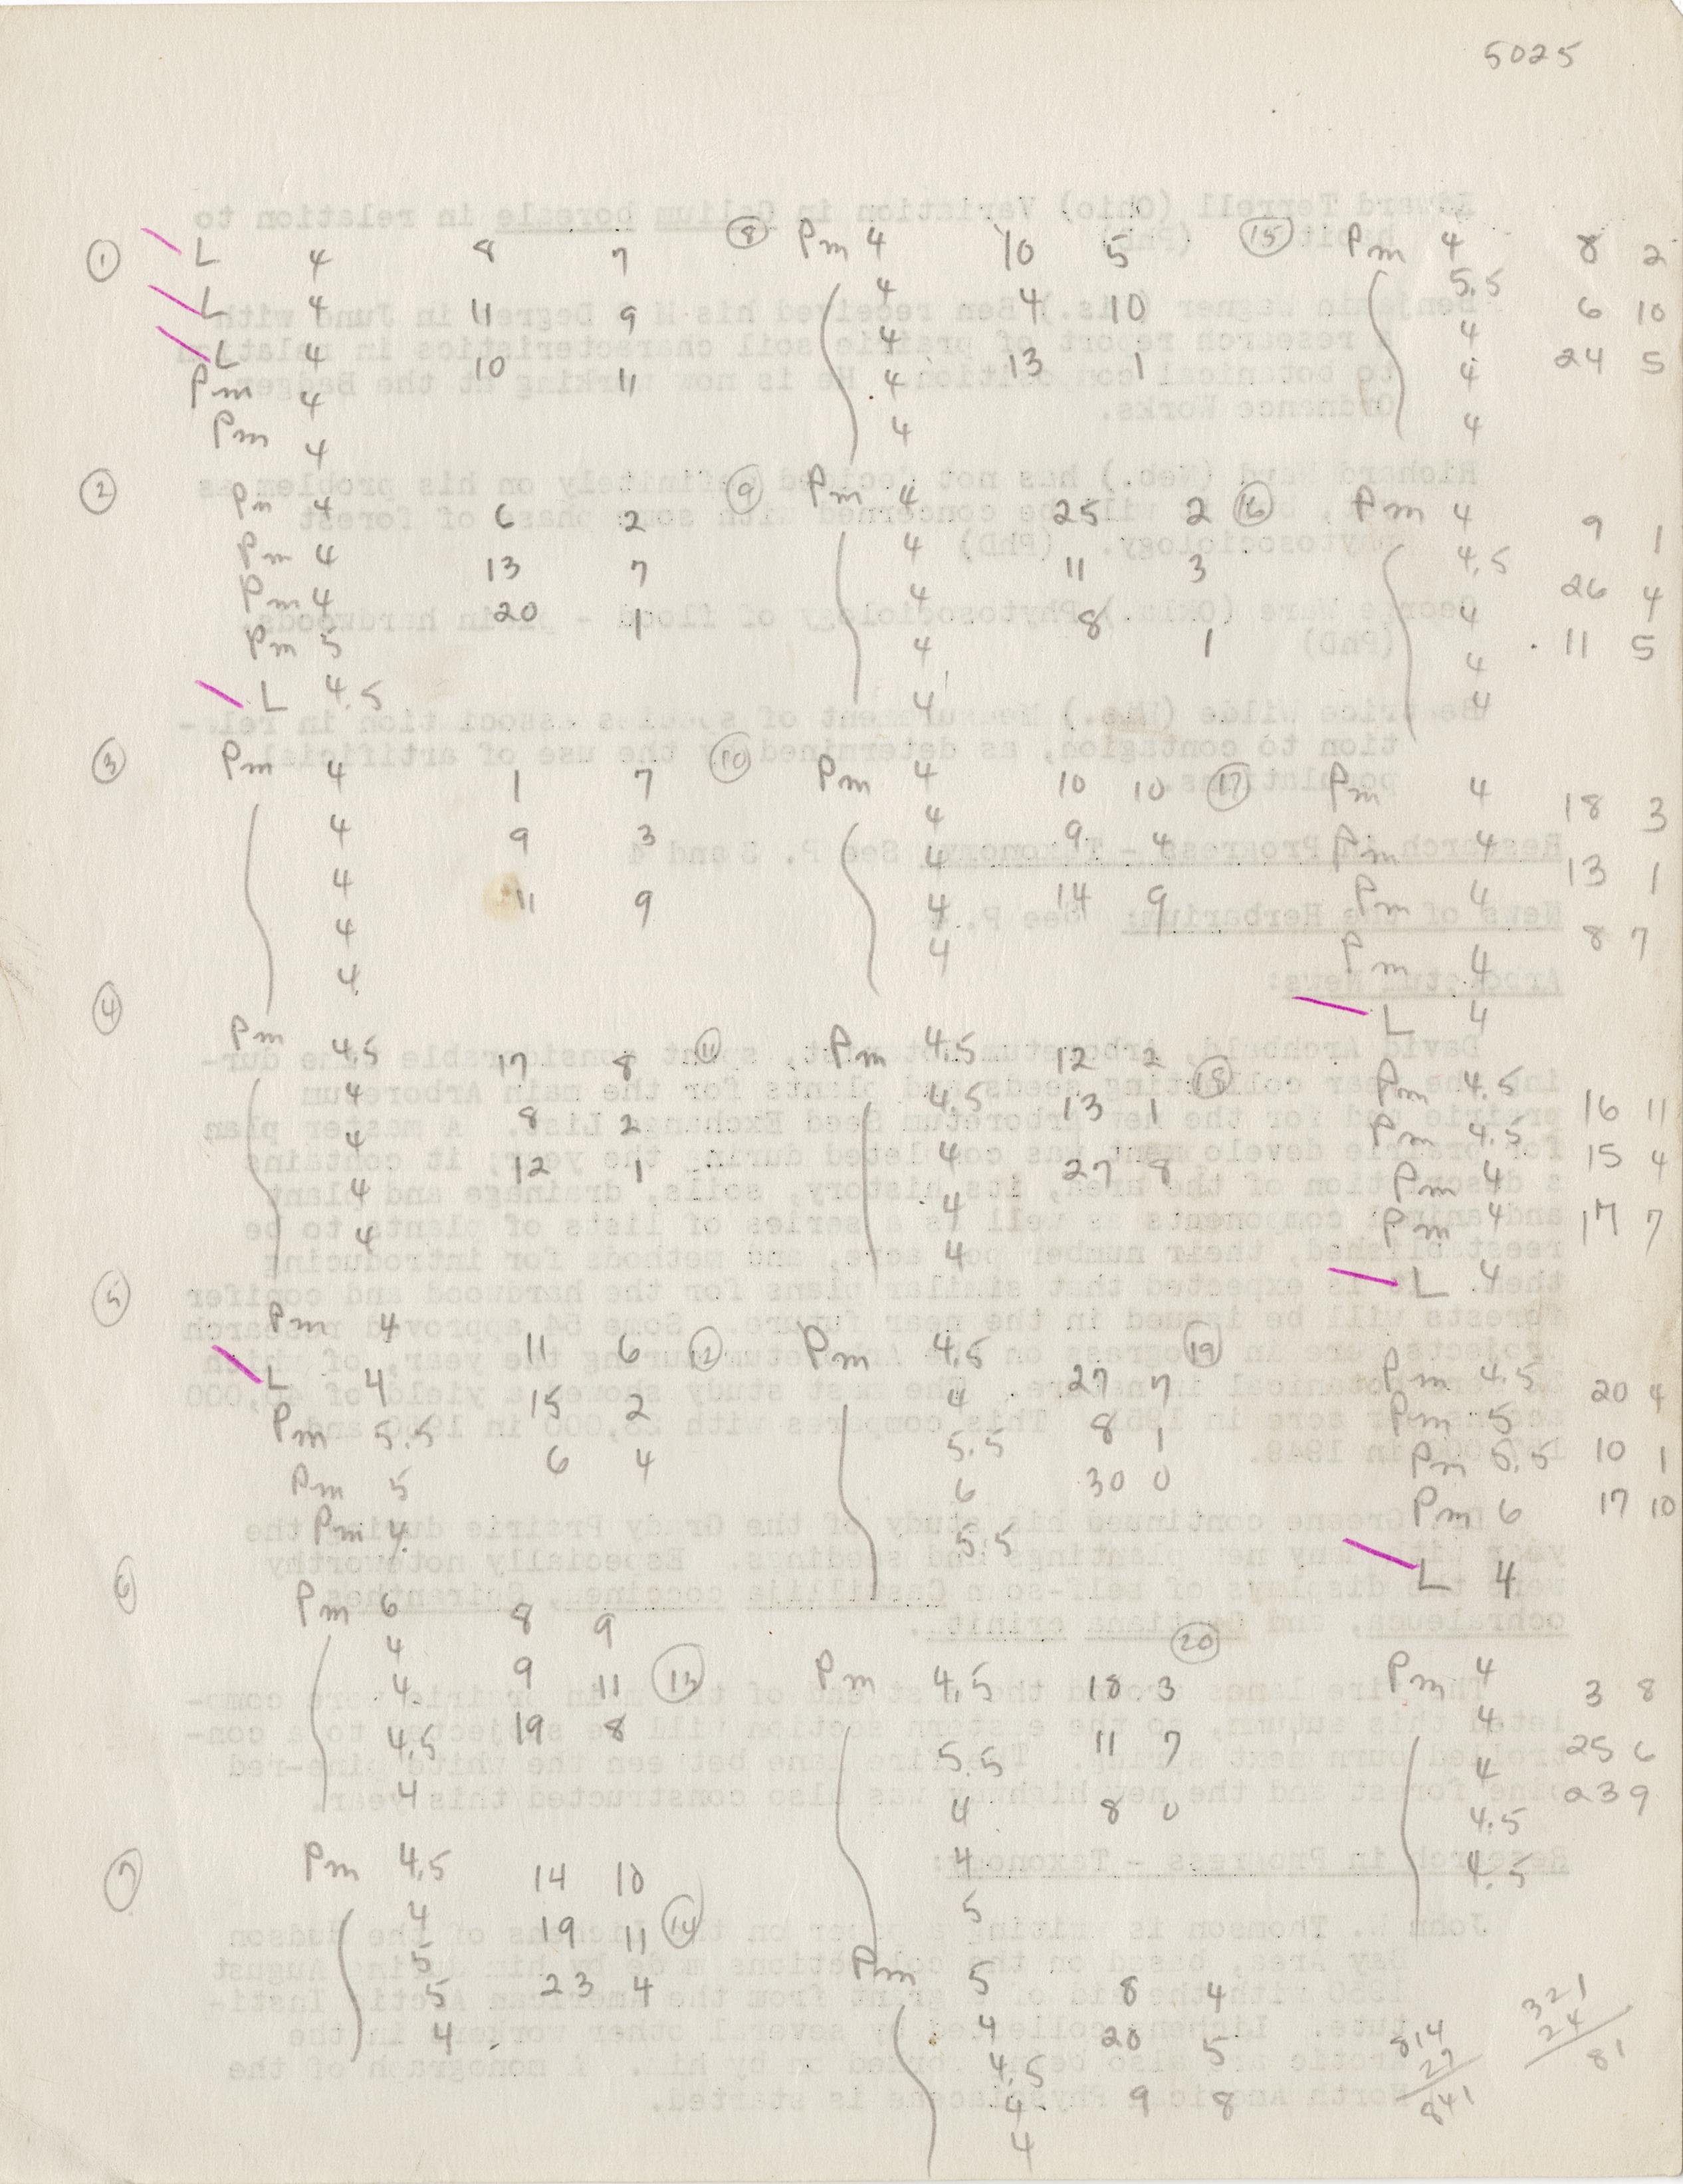 5025
① L 4 8 7
L 4 11 9
L 4 10 11
Pm 4
Pm 4
② Pm 4 6 2
Pm 4 13 7
Pm 4 20 1
Pm 5
L 4.5
③ Pm 4 1 7
4 9 3
4 11 9
4
4
④ Pm 4.5 17 8
4 8 2
4 12 1
4
4
⑤ Pm 4 11 6
L 4 15 2
Pm 5.5 6 4
Pm 5
Pm 4
⑥ Pm 6 8 9
4 9 11
4 19 8
4.5
4
⑦ Pm 4.5 14 10
4 19 11
5 23 4
5
4
⑧ Pm 4 10 5
4 4 10
4 13 1
4
4
⑨ Pm 4 25 2
4 11 3
4 8 1
4
4
⑩ Pm 4 10 10
4 9 4
4 14 9
4
4
⑪ Pm 4.5 12 2
4.5 13 1
4 27 8
4
4
⑫ Pm 4.5 27 7
4 8 1
5.5 30 0
6
5.5
⑬ Pm 4.5 18 3
5.5 11 7
4 8 0
4
5
⑭ Pm 5 8 4
4 20 5
4.5 9 8
4
4
⑮ Pm 4 8 2
5.5 6 10
4 24 5
4
4
⑯ Pm 4 9 1
4.5 26 4
4 11 5
4
4
⑰ Pm 4 18 3
Pm 4 13 1
Pm 4 8 7
Pm 4
L 4
⑱ Pm 4.5 16 11
Pm 4.5 15 4
Pm 4 17 7
Pm 4
L 4
⑲ Pm 4.5 20 4
Pm 5 10 1
Pm 5.5 17 10
Pm 6
L 4
⑳ Pm 4 3 8
4 25 6
4 23 9
4.5
4.5
814
27
841
321
24
81